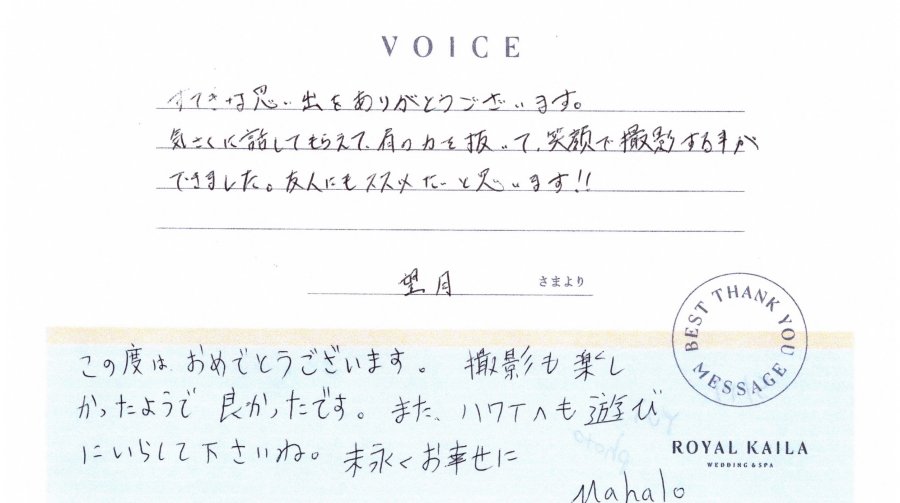 VOICE
すてきな思い出をありがとうございます。
気さくに話してもらえて、肩の力を抜いて、笑顔で撮影する事が
できました。友人にもススメたいと思います!!
望月 さまより
BEST THANK YOU MESSAGE
この度は おめでとうございます。 撮影も楽し
かったようで 良かったです。また、ハワイへも遊び
にいらして下さいね。末永くお幸せに
ROYAL KAILA
WEDDING & SPA
Mahalo